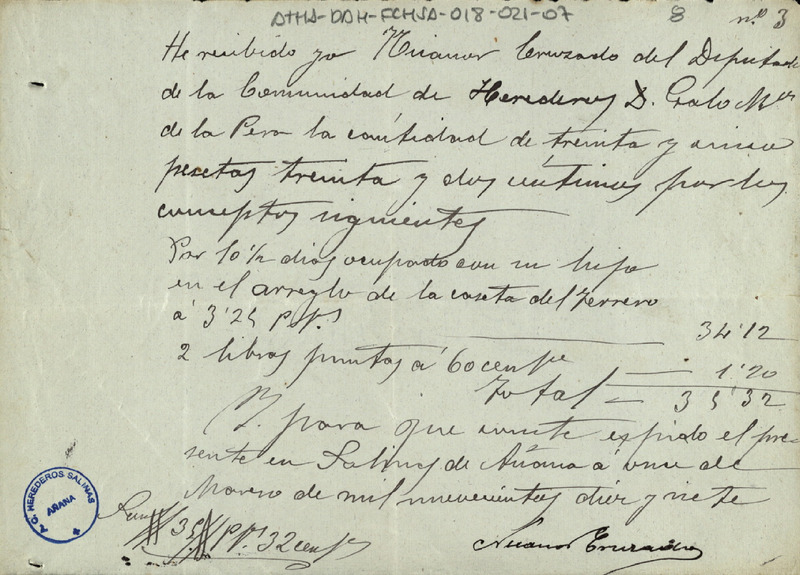 ATHA-DAH-FCHSA-018-021-07
8
n.º 3
He recibido yo Nicanor Cruzado del Diputado
de la Comunidad de Herederos D. Galo M
de la Pera la cantidad de treinta y cinco
pesetas treinta y dos centimos por los
conceptos siguientes
Por 10 1/2 dias ocupado con su hijo
en el arreglo de la caseta del Terrero
á 3'25 pts 34'12
2 libras puntas á 60 cens 1'20
Total 35'32
Y para que conste espido el pre-
sente en Salinas de Añana á once de
de mil nuevecientos diez y siete
Son # 35 # Pts 32 cens
Nicanor Cruzado
A.C. HEREDEROS SALINAS
AÑANA